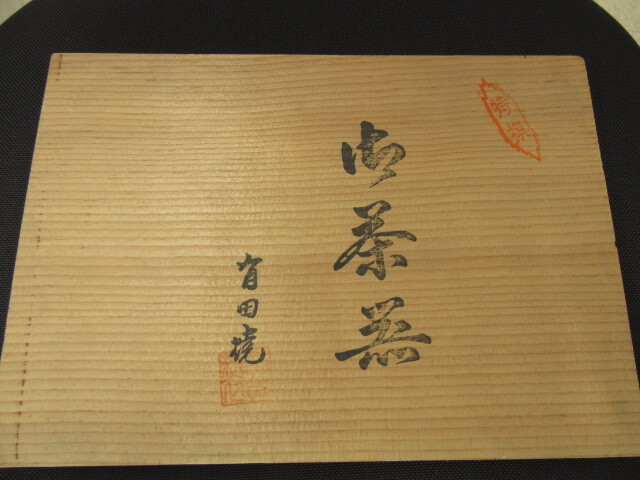 御茶器
有田焼